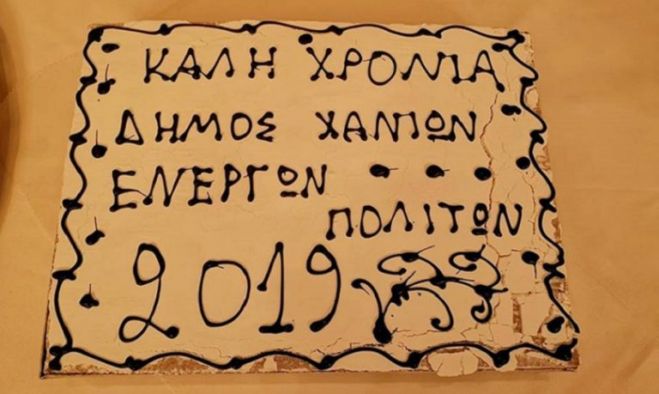 ΚΑΛΗ ΧΡΟΝΙΑ
ΔΗΜΟΣ ΧΑΝΙΩΝ
ΕΝΕΡΓΩΝ . . . .
ΠΟΛΙΤΩΝ
2019